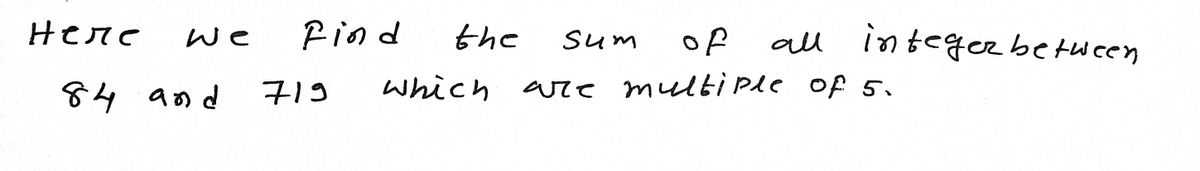 Here we find the sum of all integer between
84 and 719 which are multiple of 5.